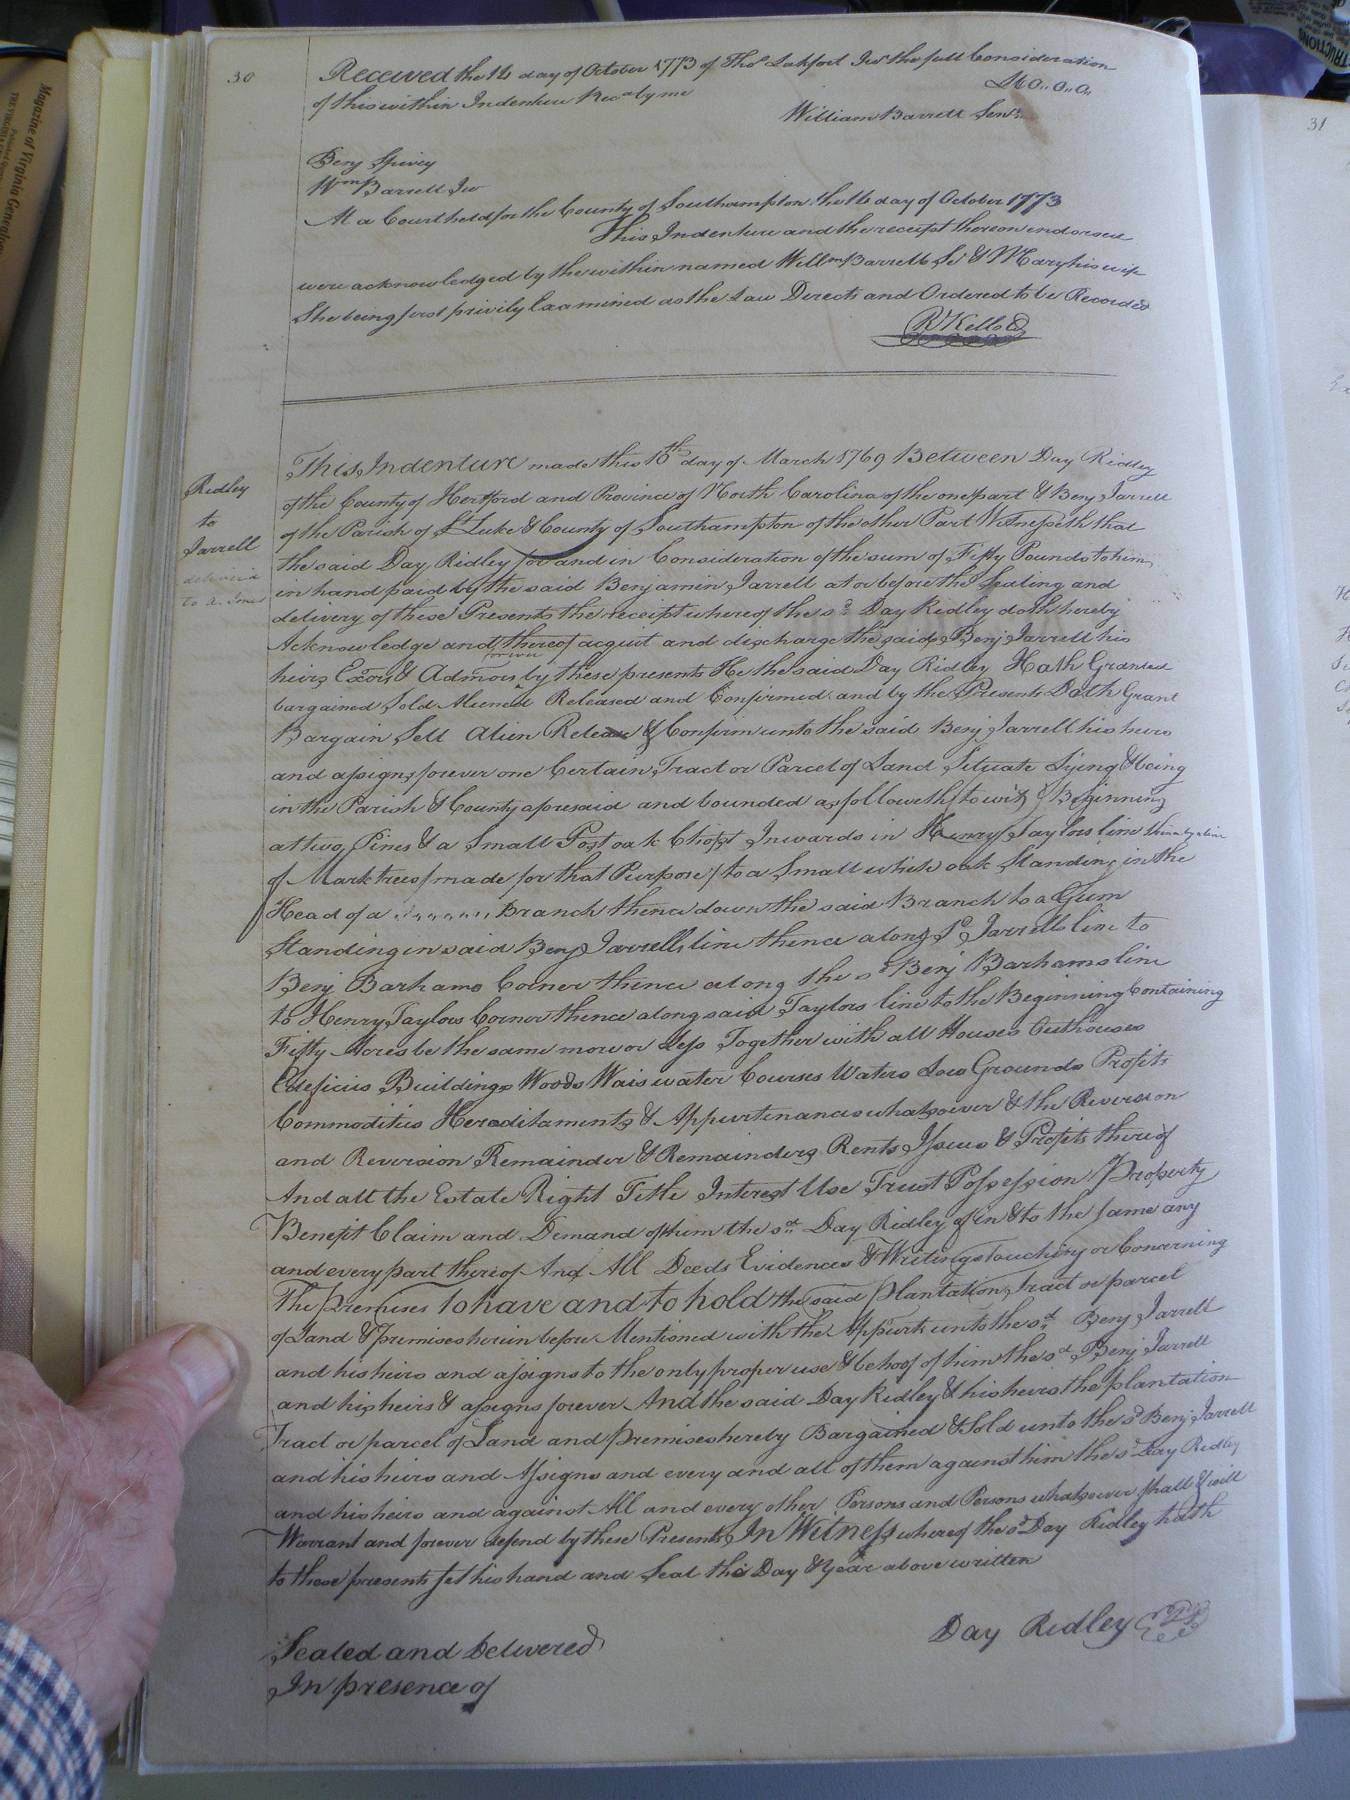 Magazine of Virginia Genealogy
30
Received the 14 day of October 1773 of Thos Jun the full Consideration
of this within Indenture Recd by me
£40.. 0.. 0..
William Barrett Senr
Benj Spivey
Wm Barrett Jur
At a Court held for the County of Southampton the 14 day of October 1773
This Indenture and the receipt thereon endorsed
were acknowledged by the within named Willm Barrett Sr & Mary his wife
She being first privily Examined as the Law Directs and Ordered to be Recorded
R Kello
Ridley
to
Jarrell
delivered
This Indenture made this day of March 1769 Between Day Ridley
of the County of Hertford and Province of North Carolina of the one part & Benj Jarrell
of the Parish of St Luke & County of Southampton of the other Part Witnesseth that
the said Day Ridley for and in Consideration of the sum of Fifty Pounds to him
in hand paid by the said Benjamin Jarrell at or before the Sealing and
delivery of these Presents the receipt whereof the sd Day Ridley doth hereby
Acknowledge and thereof acquit and discharge the said Benj Jarrell his
heirs Exors & Admors by these presents He the said Day Ridley Hath Granted
bargained Sold Aliened Released and Confirmed and by the Presents Doth Grant
Bargain Sell Alien Release & Confirm unto the said Benj Jarrell his heirs
and assigns forever one Certain Tract or Parcel of Land Situate Lying & being
in the Parish & County aforesaid and bounded as followeth to wit Beginning
at two Pines & a Small Post oak Chopt Inwards in Henry Taylors line
of Mark trees made for that Purpose to a Small white oak Standing in the
Head of a Branch thence down the said Branch to a Gum
Standing in said Benj Jarrells line thence along sd Jarrells line to
Benj Barhams Corner thence along the sd Benj Barhams line
to Henry Taylors Corner thence along said Taylors line to the Beginning Containing
Fifty Acres be the same more or Less Together with all Houses Outhouses
Edificies Buildings Woods Wais water Courses Waters Low Grounds Profits
Commodities Hereditaments & Appurtenances whatsoever & the Reversion
and Reversion Remainder & Remainders Rents Issues & Profits thereof
And all the Estate Right Title Interest Use Trust Possession Property
Benefit Claim and Demand of him the sd Day Ridley of in & to the same any
and every part thereof And All Deeds Evidences & Writings touching or Concerning
The Premises to have and to hold the said plantation tract or parcel
of Land & premises herein before Mentioned with the Appurts unto the sd Benj Jarrell
and his heirs and assigns to the only proper use & behoof of him the sd Benj Jarrell
and his heirs & assigns forever And the said Day Ridley & his heirs the plantation
Tract or parcel of Land and premises hereby Bargained & Sold unto the sd Benj Jarrell
and his heirs and Assigns and every and all of them against him the sd Day Ridley
and his heirs and against All and every other Persons and Persons whatsoever shall & will
Warrant and forever defend by these Presents In Witness whereof the sd Day Ridley hath
to these presents set his hand and Seal the Day & Year above written
Day Ridley
Sealed and Delivered
In presence of
31